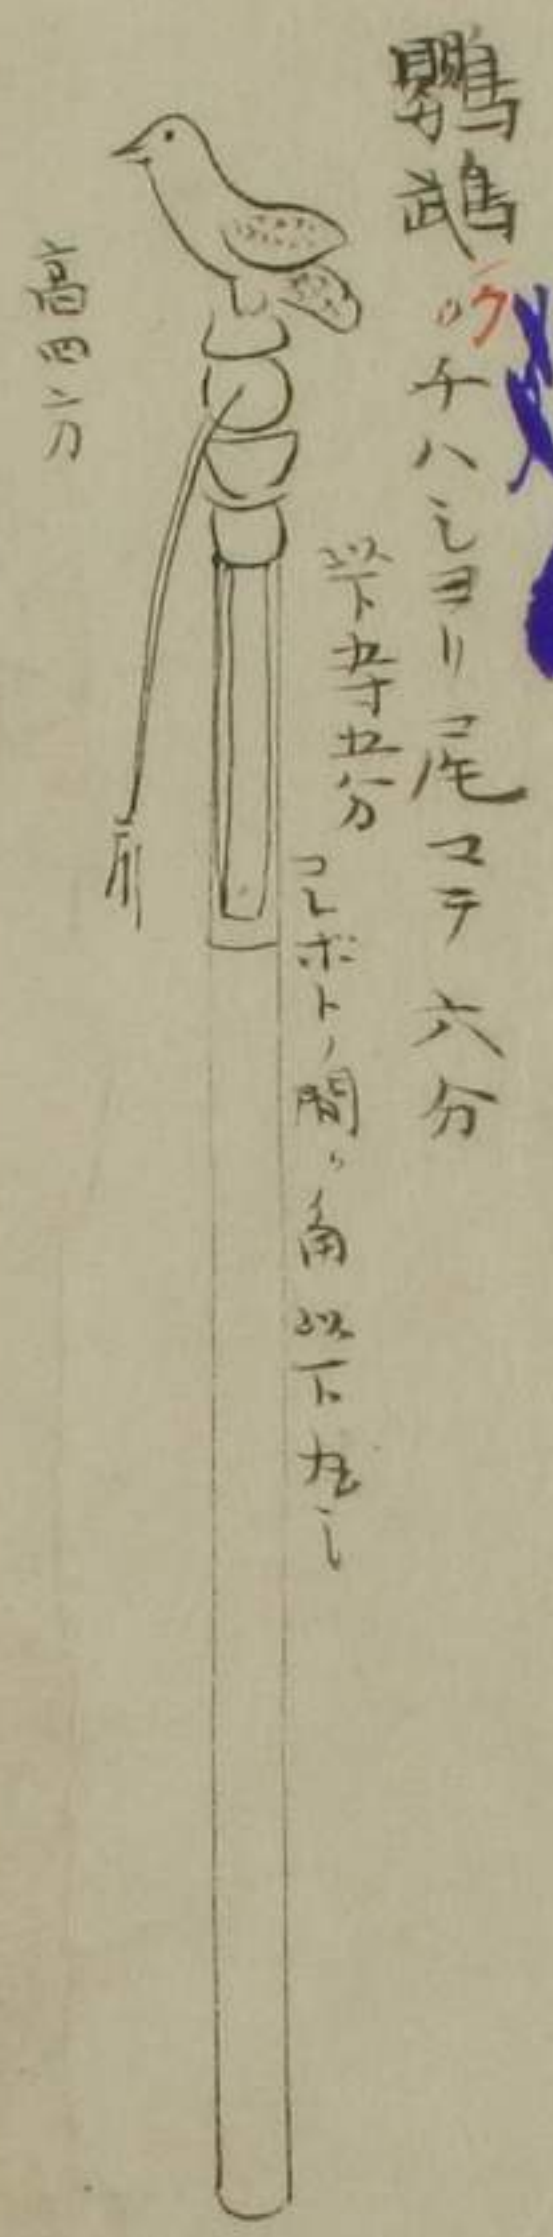 鸚鵡クチハシヨリ尾マテ六分
以下五寸五分
コレホトノ間ハ角以下左ニ
高四分